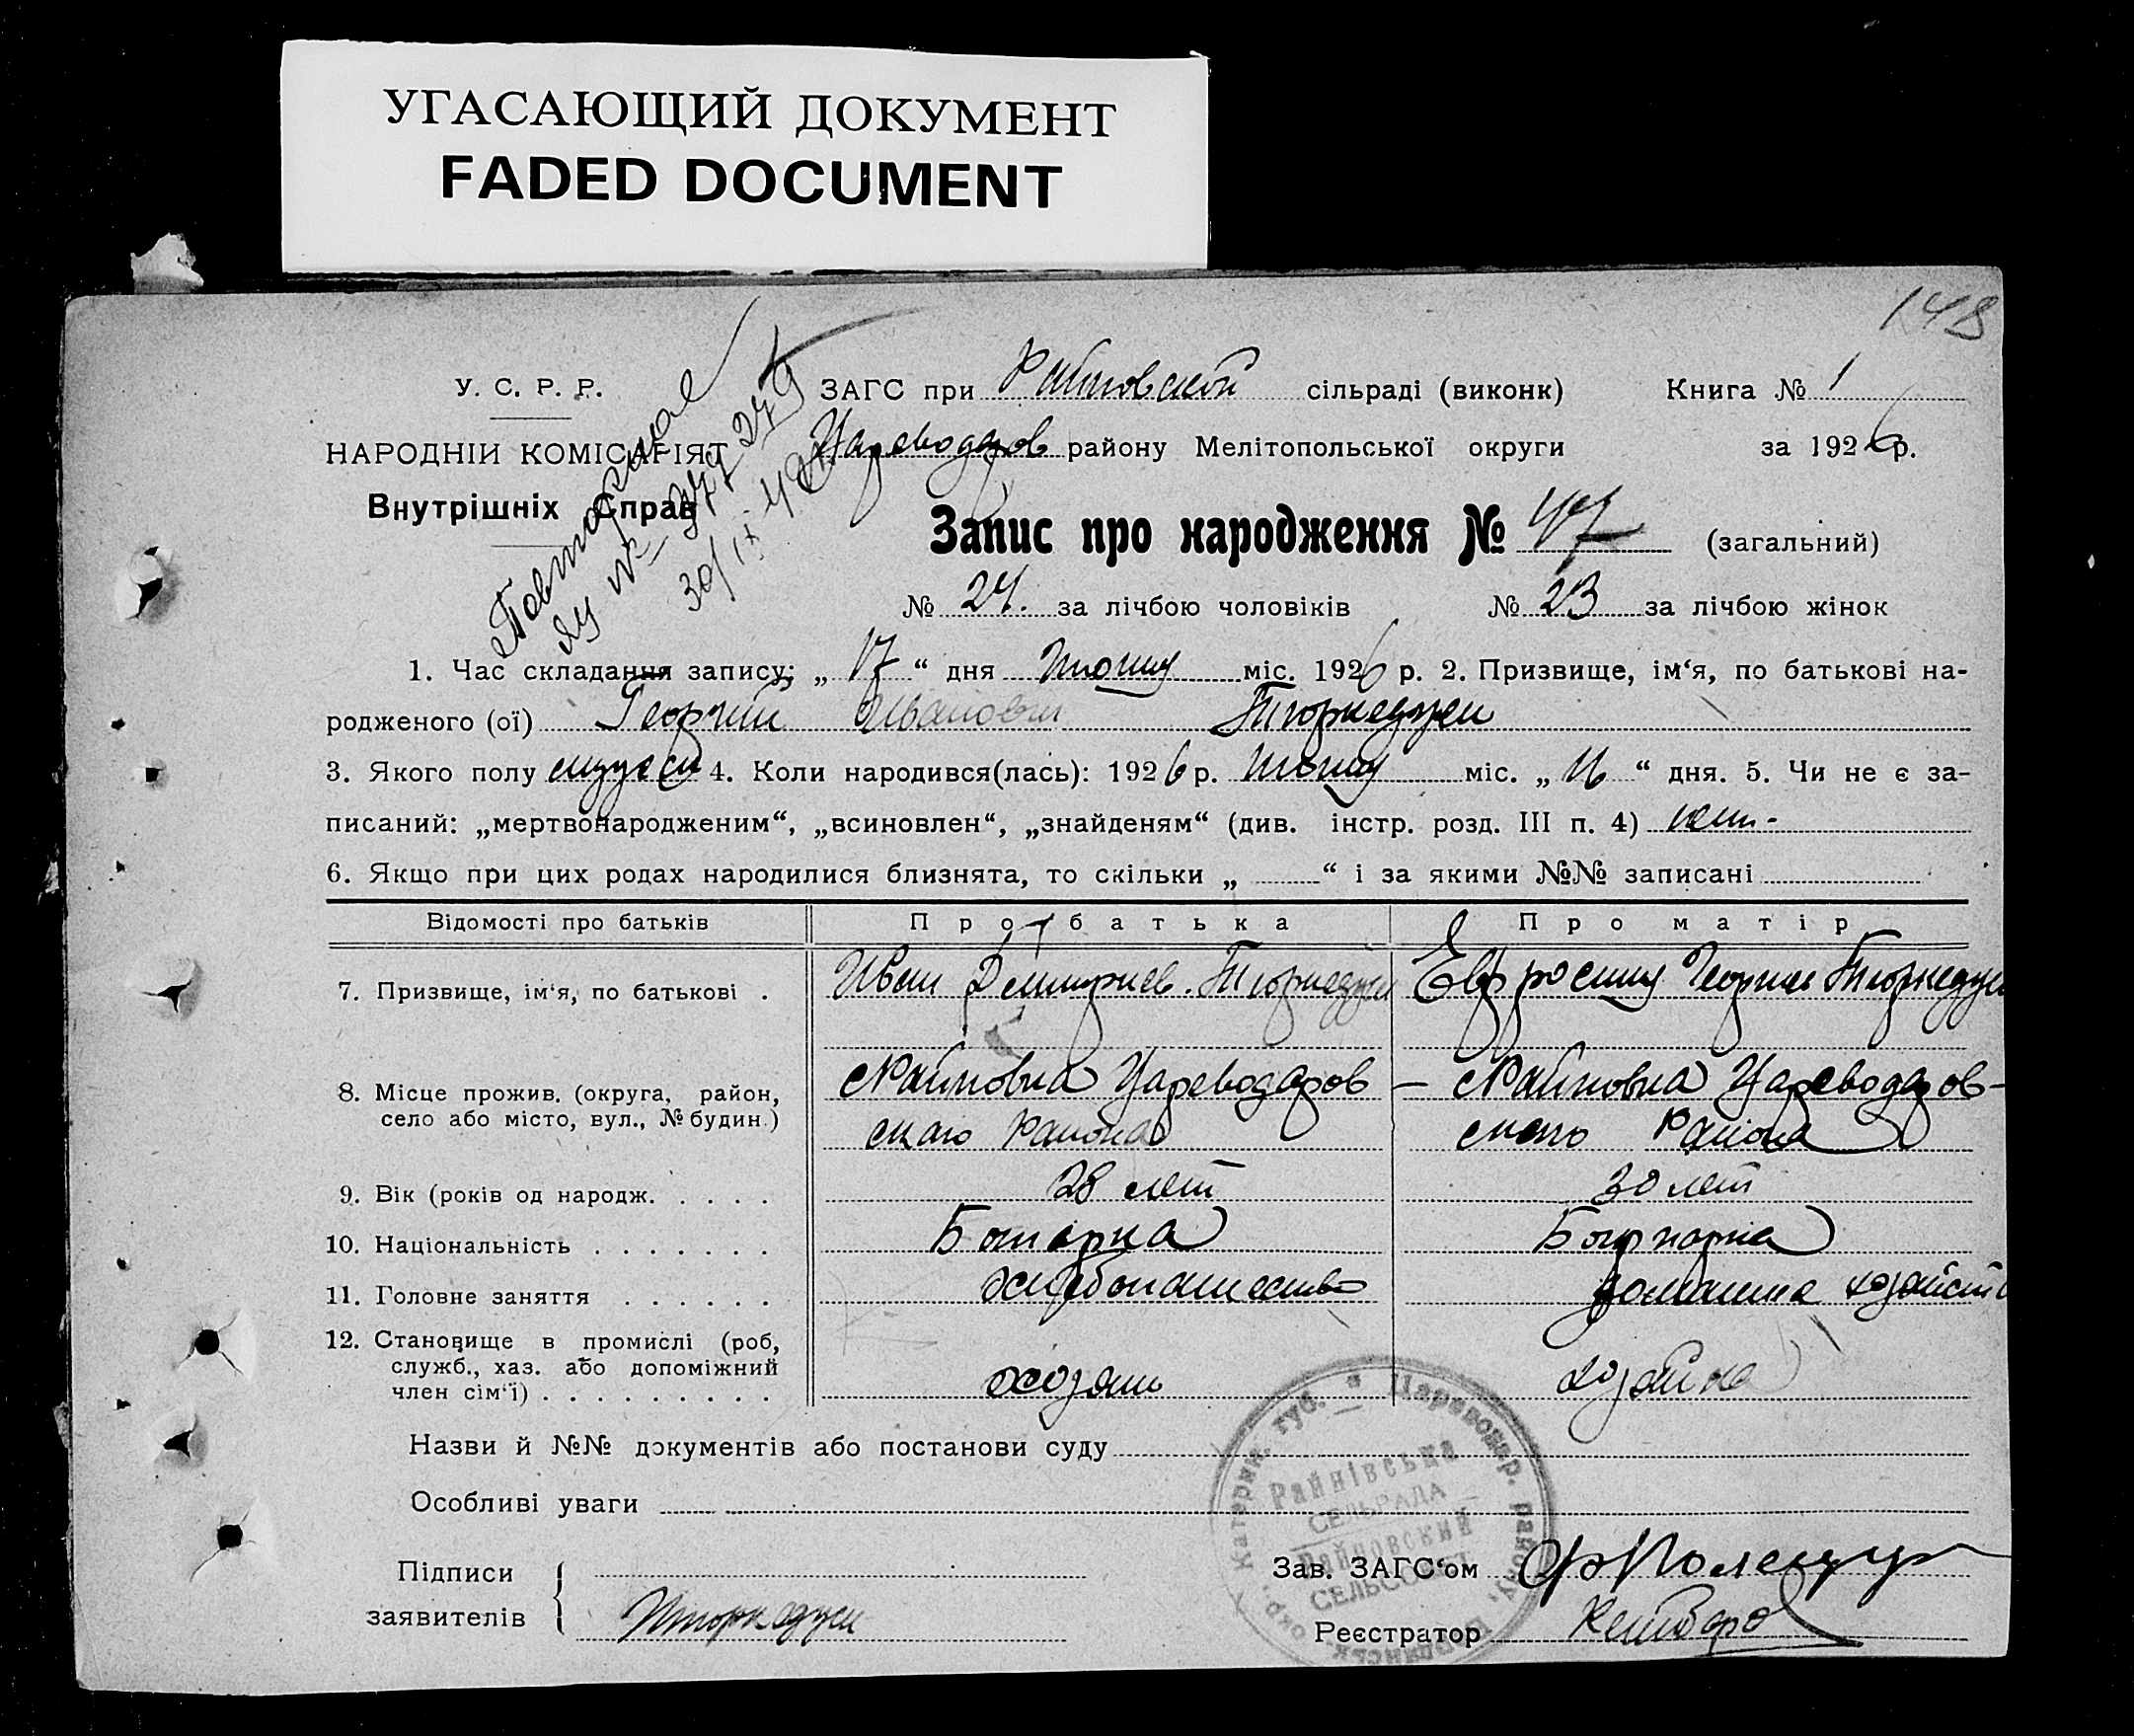 УГАСАЮЩИЙ ДОКУМЕНТ
FADED DOCUMENT
148
У. С. Р. Р.
ЗАГС при Райновской сільраді (виконк)
Книга № 1
НАРОДНІЙ КОМІСАРІЯТ
Цареводаров району Мелітопольської округи
за 1926 р.
Внутрішніх Справ
Повторное
30/IX
Запис про народження № 47 (загальний)
№ 24. за лічбою чоловіків № 23 за лічбою жінок
1. Час складання запису: „ 17 “ дня Июня міс. 1926 р. 2. Призвище, ім‘я, по батькові на-
родженого (ої) Георгий Иванович Тюркеджи
3. Якого полу мужск 4. Коли народився(лась): 1926 р. Июня міс. „ 16 “ дня. 5. Чи не є за-
писаний: „мертвонародженим“, „всиновлен“, „знайденям“ (див. інстр. розд. III п. 4) нет.
6. Якщо при цих родах народилися близнята, то скільки „ “ і за якими №№ записані
Відомості про батьків Про батька Про матір
7. Призвище, ім‘я, по батькові . Иван Дмитриев. Тюркеджи Евфросиния Георгиев Тюркеджи
8. Місце прожив. (округа, район, Райновка Цареводаров – Райновка Цареводаров-
село або місто, вул., № будин.) скаго Района скаго Района
9. Вік (років од народж. . . . . 28 лет 30 лет
10. Національність . . . . . . .
11. Головне заняття . . . . . . хлебопашество домашнее хозяйств
12. Становище в промислі (роб,
служб., хаз. або допоміжний
член сім‘ї) . . . . . . . . . хозяин хозяйка
Назви й №№ документів або постанови суду
Особливі уваги
Катерин. губ. Цареводар. району,
Райнівська
СЕЛЬРАДА
Райновский
СЕЛЬСОВЕТ
Підписи
заявителів Тюркеджи
Зав. ЗАГС‘ом
Реєстратор